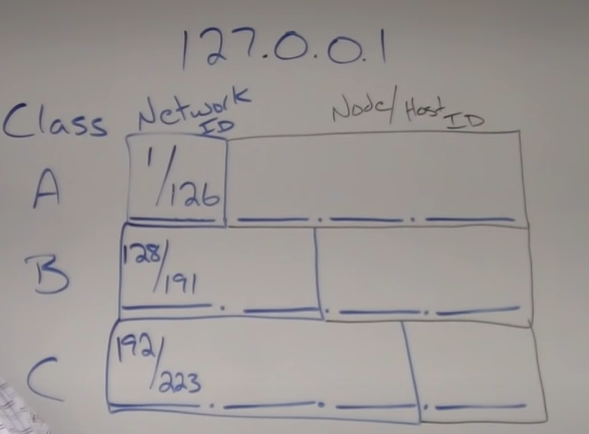 127.0.0.1
Class Network ID Node/Host ID
A 1/126
B 128/191
C 192/223